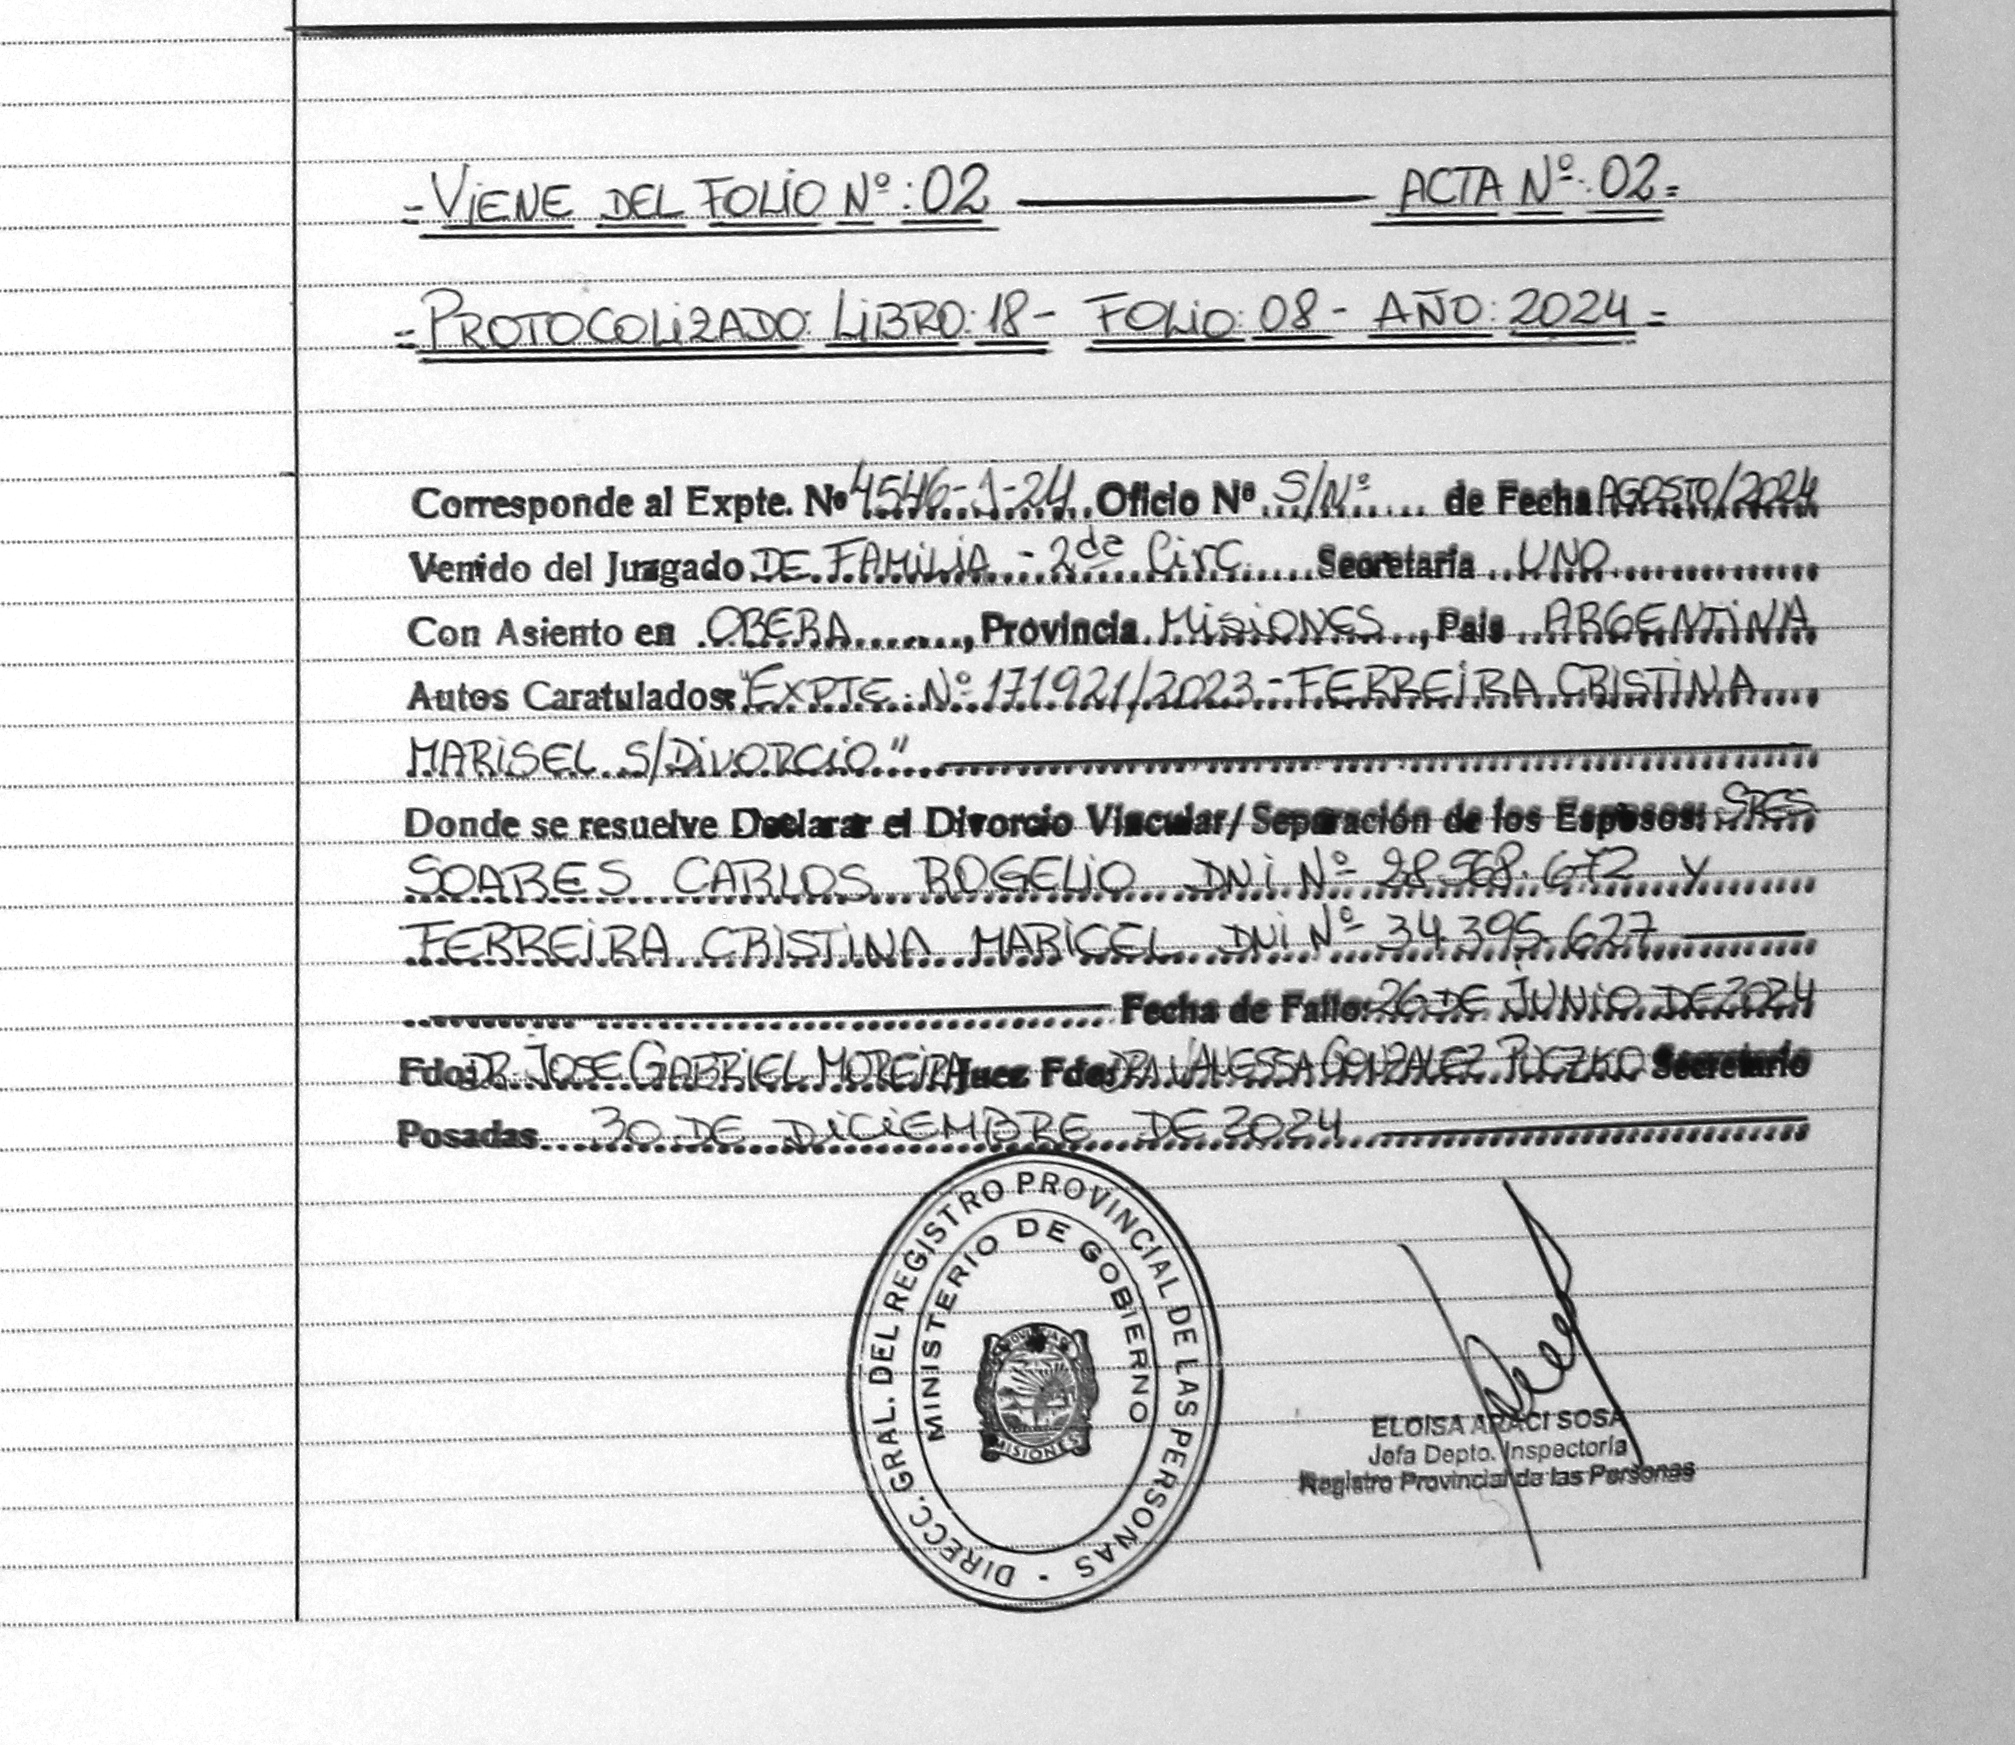 =VIENE DEL FOLIO Nº: 02 ACTA Nº: 02=
=PROTOCOLIZADO: LIBRO: 18- FOLIO: 08- AÑO: 2024=
Corresponde al Expte. Nº 4546-J-24 Oficio Nº S/Nº de Fecha AGOSTO/2024
Venido del Juzgado DE FAMILIA - 2da Circ. Secretaría UNO
Con Asiento en OBERA, Provincia MISIONES, Pais ARGENTINA
Autos Caratulados: "EXPTE. Nº 171921/2023-FERREIRA CRISTINA
MARISEL S/DIVORCIO"
Donde se resuelve Declarar el Divorcio Vincular/Separación de los Esposos: SRES
SOARES CARLOS ROGELIO DNI Nº 28.568.672 Y
FERREIRA CRISTINA MARICEL DNI Nº 34.395.627
Fecha de Fallo: 26 DE JUNIO DE 2024
Fdo: DR. JOSE GABRIEL MOREIRA Juez Fdo: DRA VANESSA GONZALEZ Secretario
Posadas 30 DE DICIEMBRE DE 2024
DIRECC. GRAL. DEL REGISTRO PROVINCIAL DE LAS PERSONAS
MINISTERIO DE GOBIERNO
PROVINCIA DE
MISIONES
ELOISA ARACI SOSA
Jefa Depto. Inspectoría
Registro Provincial de las Personas